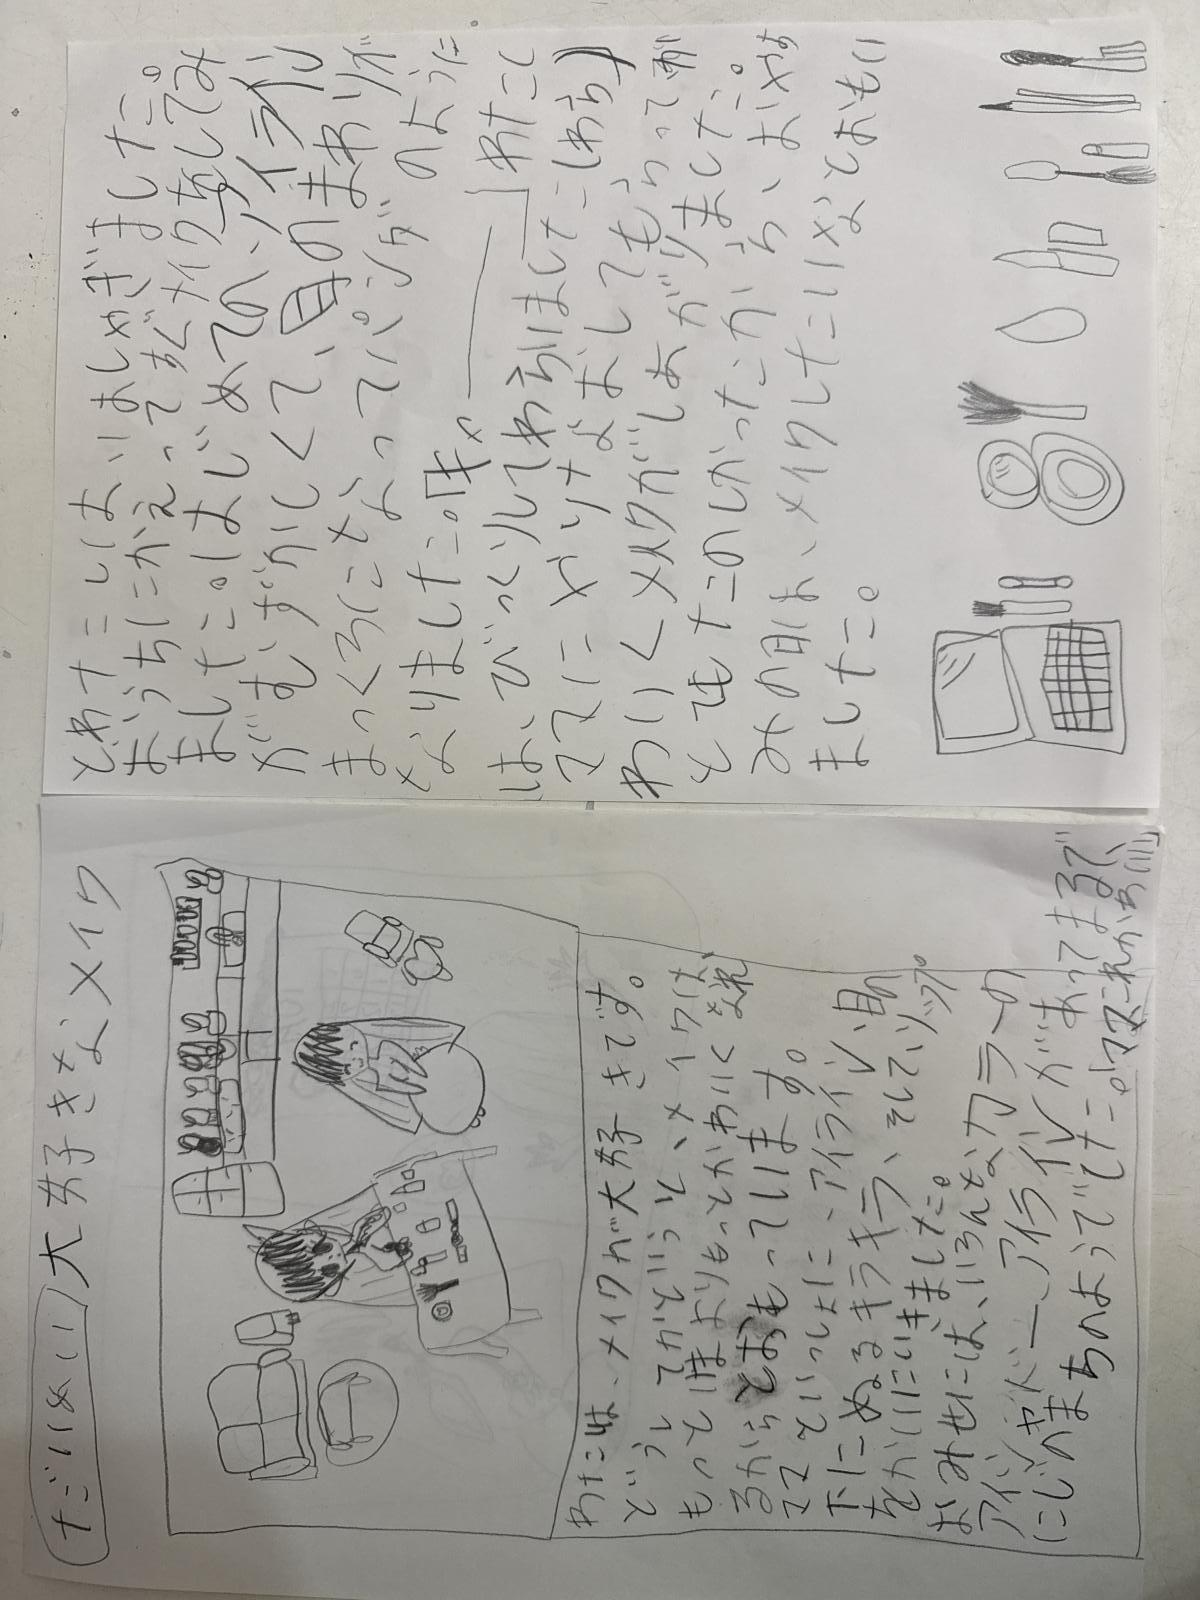 だいめい 大好きなメイク
わたしは、メイクが大好きです。
どうしてかというと、メイクは、
もっと前よりもっとかわいくなれ
るからとおもっています。
ママといっしょに、アイライン、目の
下にぬるキラキラ、そしてリップ
をかいにいきました。
おみせには、いろんなカラーの
アイシャドー、アイラインがあってまるで
にじのまちのようでした。「ママこれかわいい」
とわたしはおおはしゃぎました。
おうちにかえってすぐメイクをしてみ
ました。はじめてのアイライン
がむずかしくて、目のまわりが
まっくろになってパンダのように
なりました。「キャー」わたし
は、びっくりしてわらいました(わら)
ママにやりなおしてもらってか
わいくメイクがしあがりました。
とてもたのしかったから、おやす
みの日は、メイクしたいなとおもい
ました。